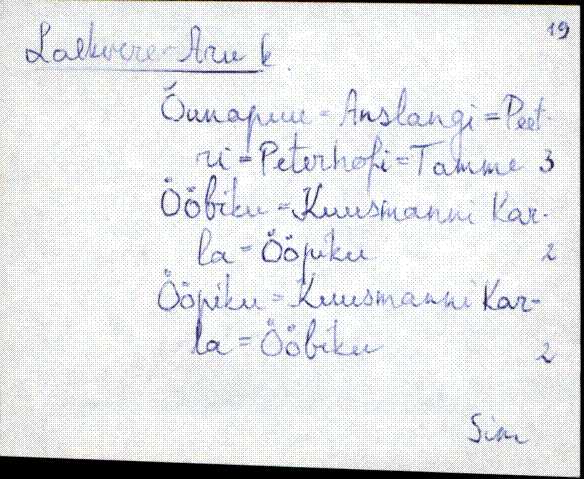 19
Laekvere - Aru k.
Õunapuu = Anslangi = Peet-
ri = Peterhofi = Tamme 3
Ööbiku = Kuusmanni Kar-
la = Ööpiku 2
Ööpiku = Kuusmanni Kar-
la = Ööbiku 2
Sim